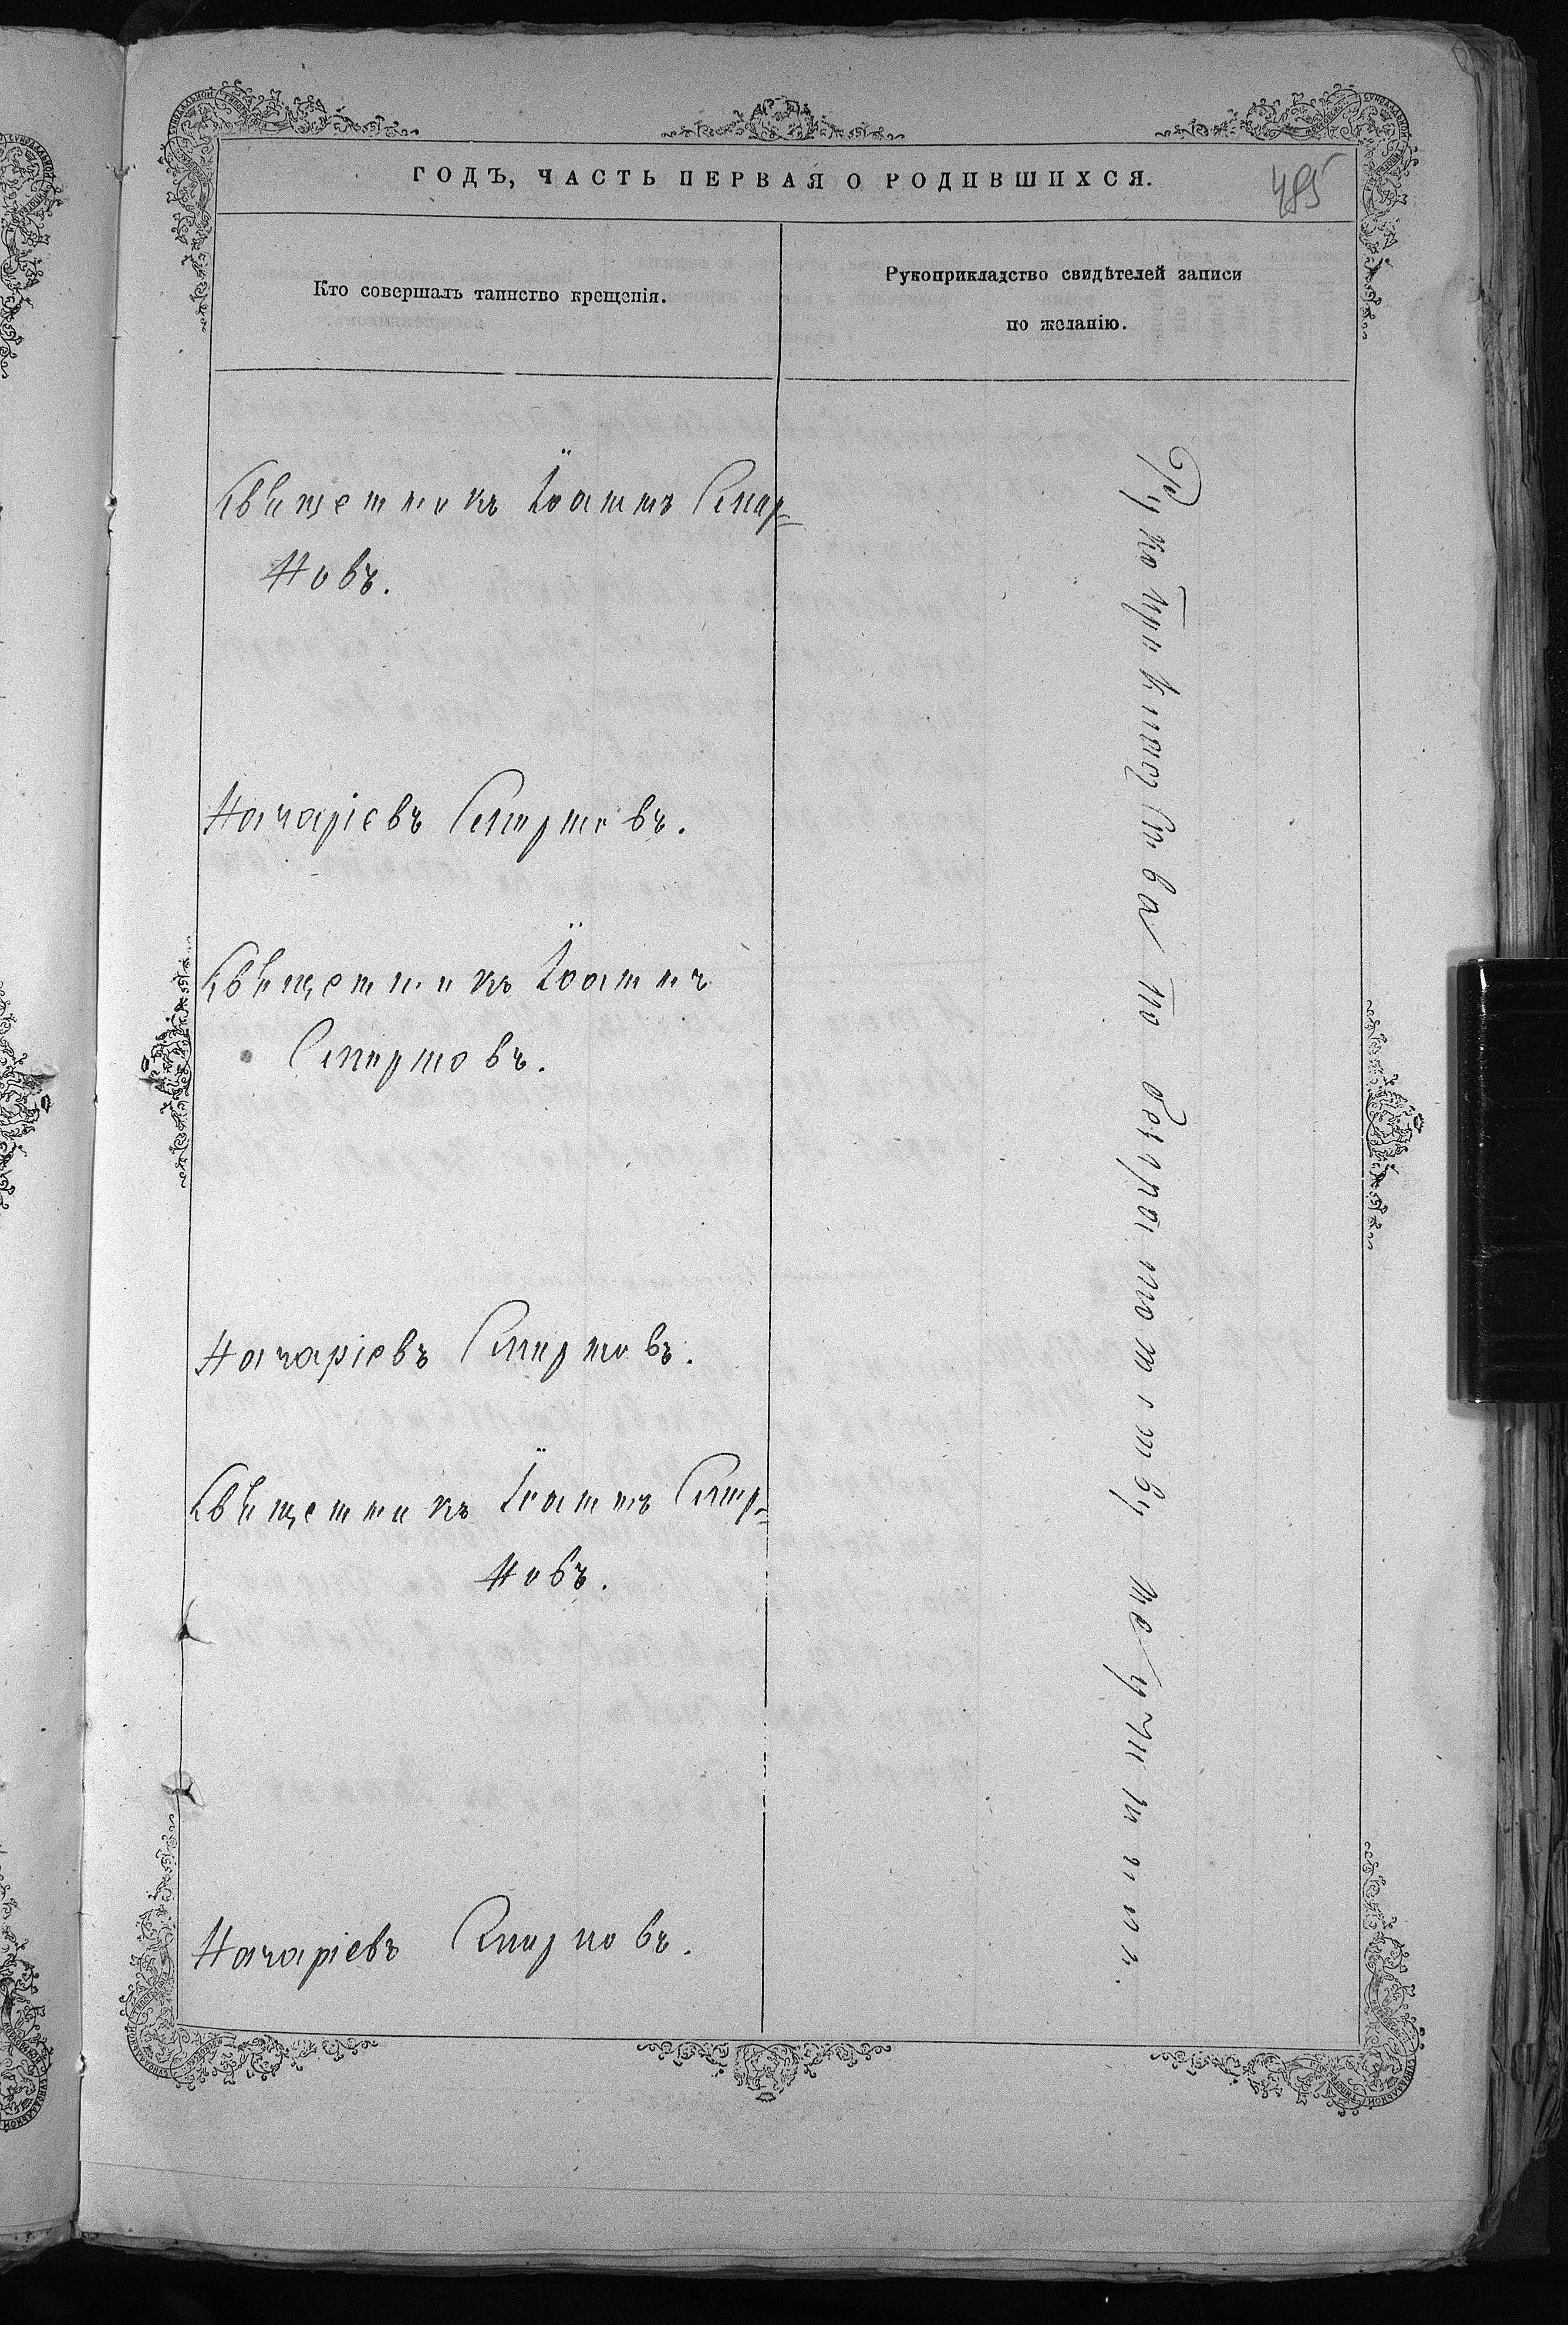 ГОДЪ, ЧАСТЬ ПЕРВАЯ О РОДИВШИХСЯ.
495
Кто совершалъ таинство крещенія.
Рукоприкладство свидѣтелей записи
по желанію.
Священникъ Іоаннъ Смир-
новъ.
Смирновъ.
Священникъ Іоаннъ
Смирновъ.
Смирновъ.
Священникъ Іоаннъ Смир-
новъ.
Смирновъ.
Рукоприкладства по безграмотству не учинили.